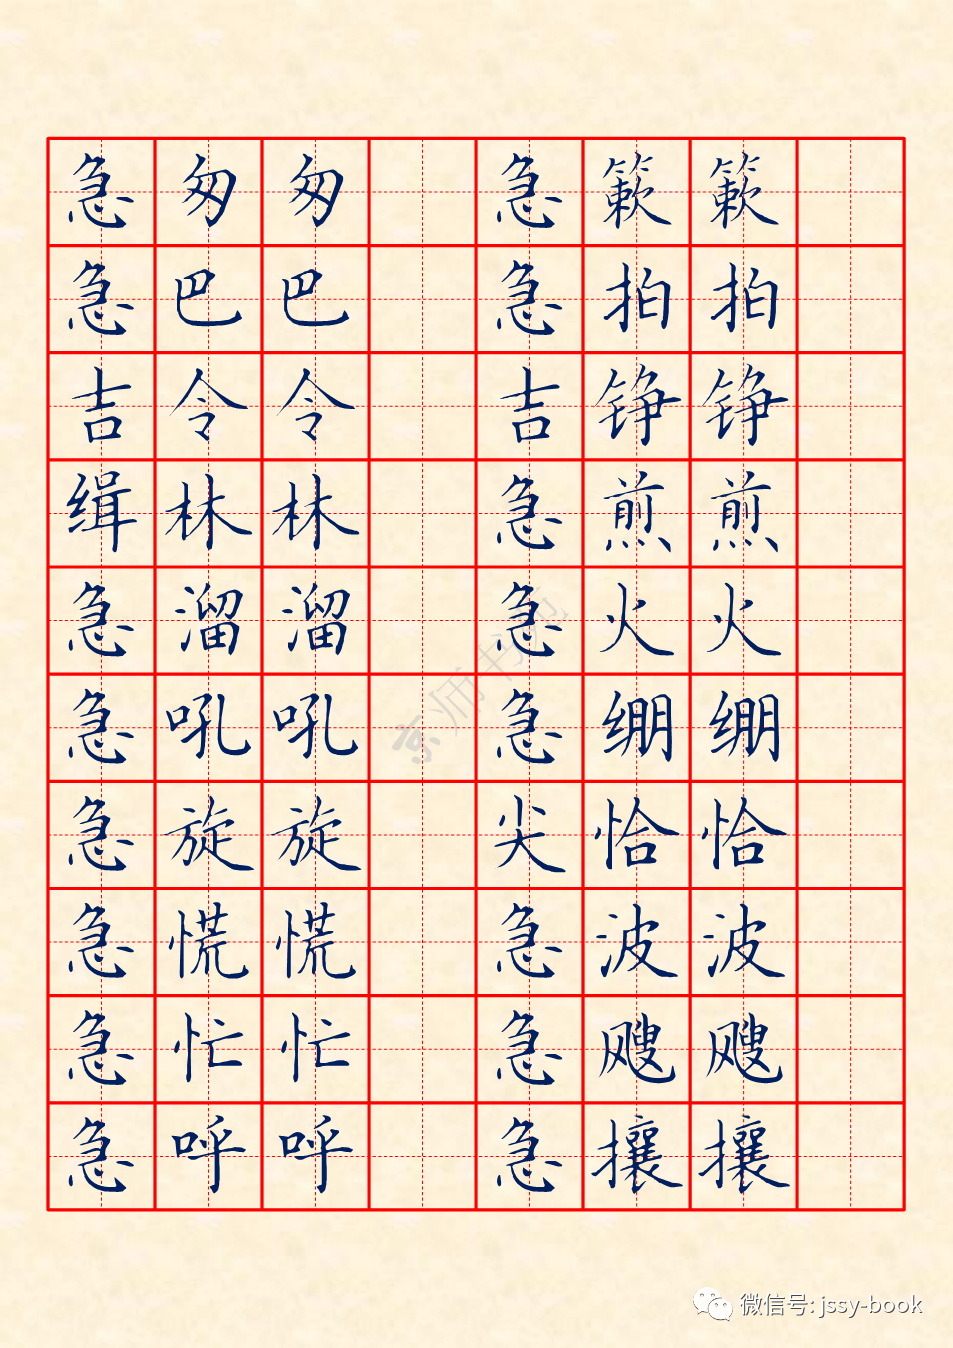 急匆匆 急簌簌
急巴巴 急拍拍
吉令令 吉铮铮
缉林林 急煎煎
急溜溜 急火火
急吼吼 急绷绷
急旋旋 尖恰恰
急慌慌 急波波
急忙忙 急飕飕
急呼呼 急攘攘
京师书苑
微信号: jssy-book